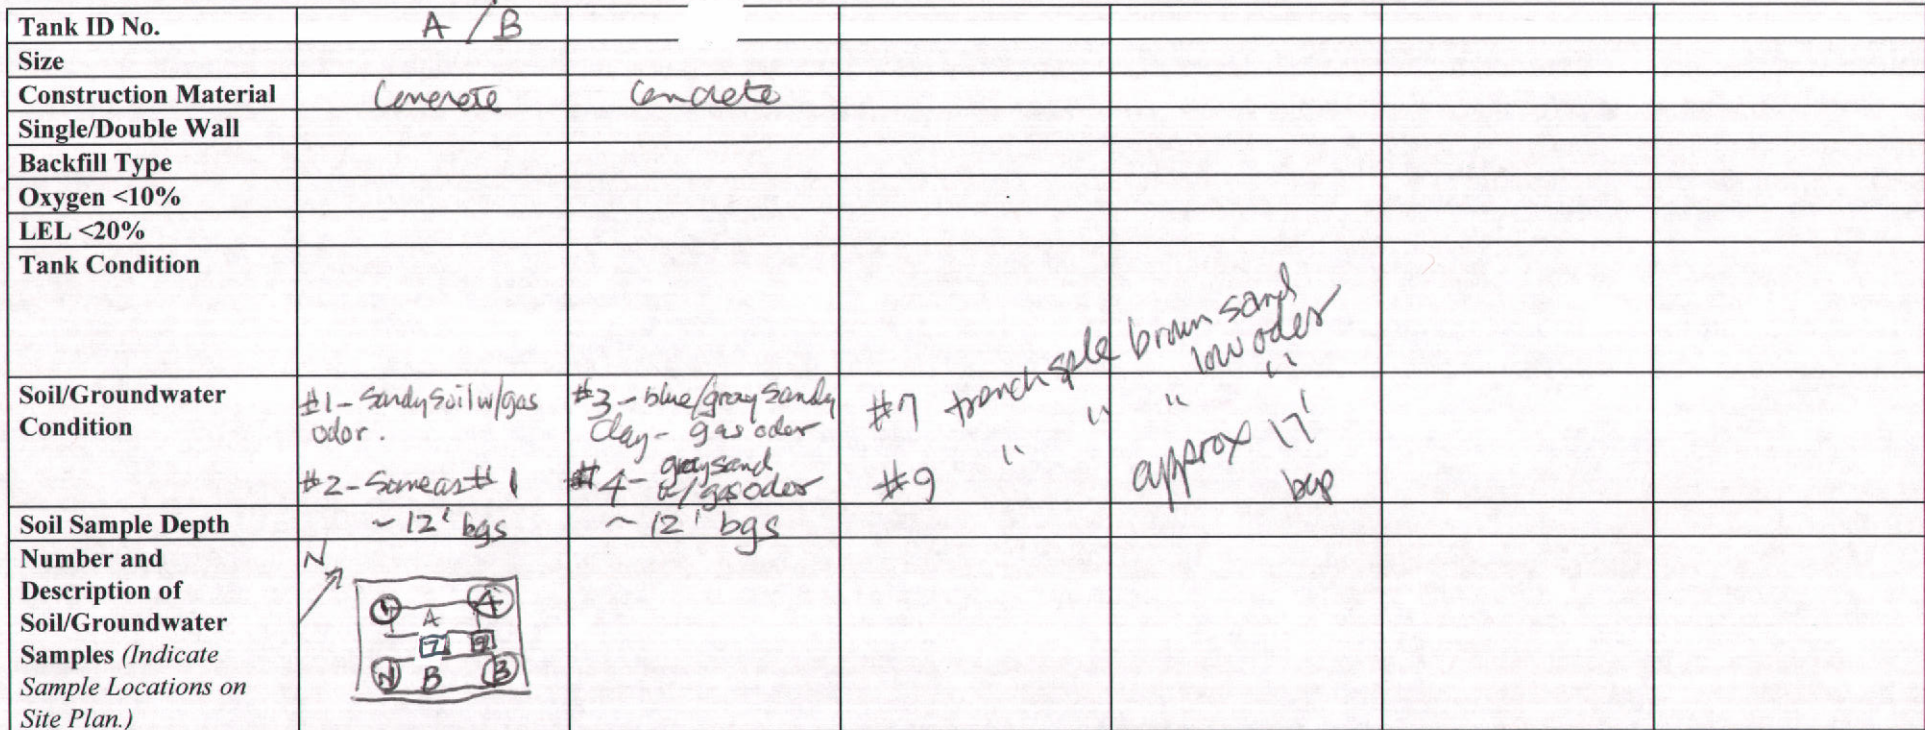 Tank ID No. A / B
Size
Construction Material Concrete Concrete
Single/Double Wall
Backfill Type
Oxygen <10%
LEL <20%
Tank Condition
Soil/Groundwater
Condition
#1 - Sandy Soil w/gas
odor.
#2 - Same as #1
#3 - blue/gray Sandy
Clay - gas odor
#4 - gray sand
w/gas odor
#7 trench sple brown sand
" " low odor
#9 " "
approx 17'
bgs
Soil Sample Depth ~ 12' bgs ~ 12' bgs
Number and
Description of
Soil/Groundwater
Samples (Indicate
Sample Locations on
Site Plan.)
N
1 A 4
7 9
B 3